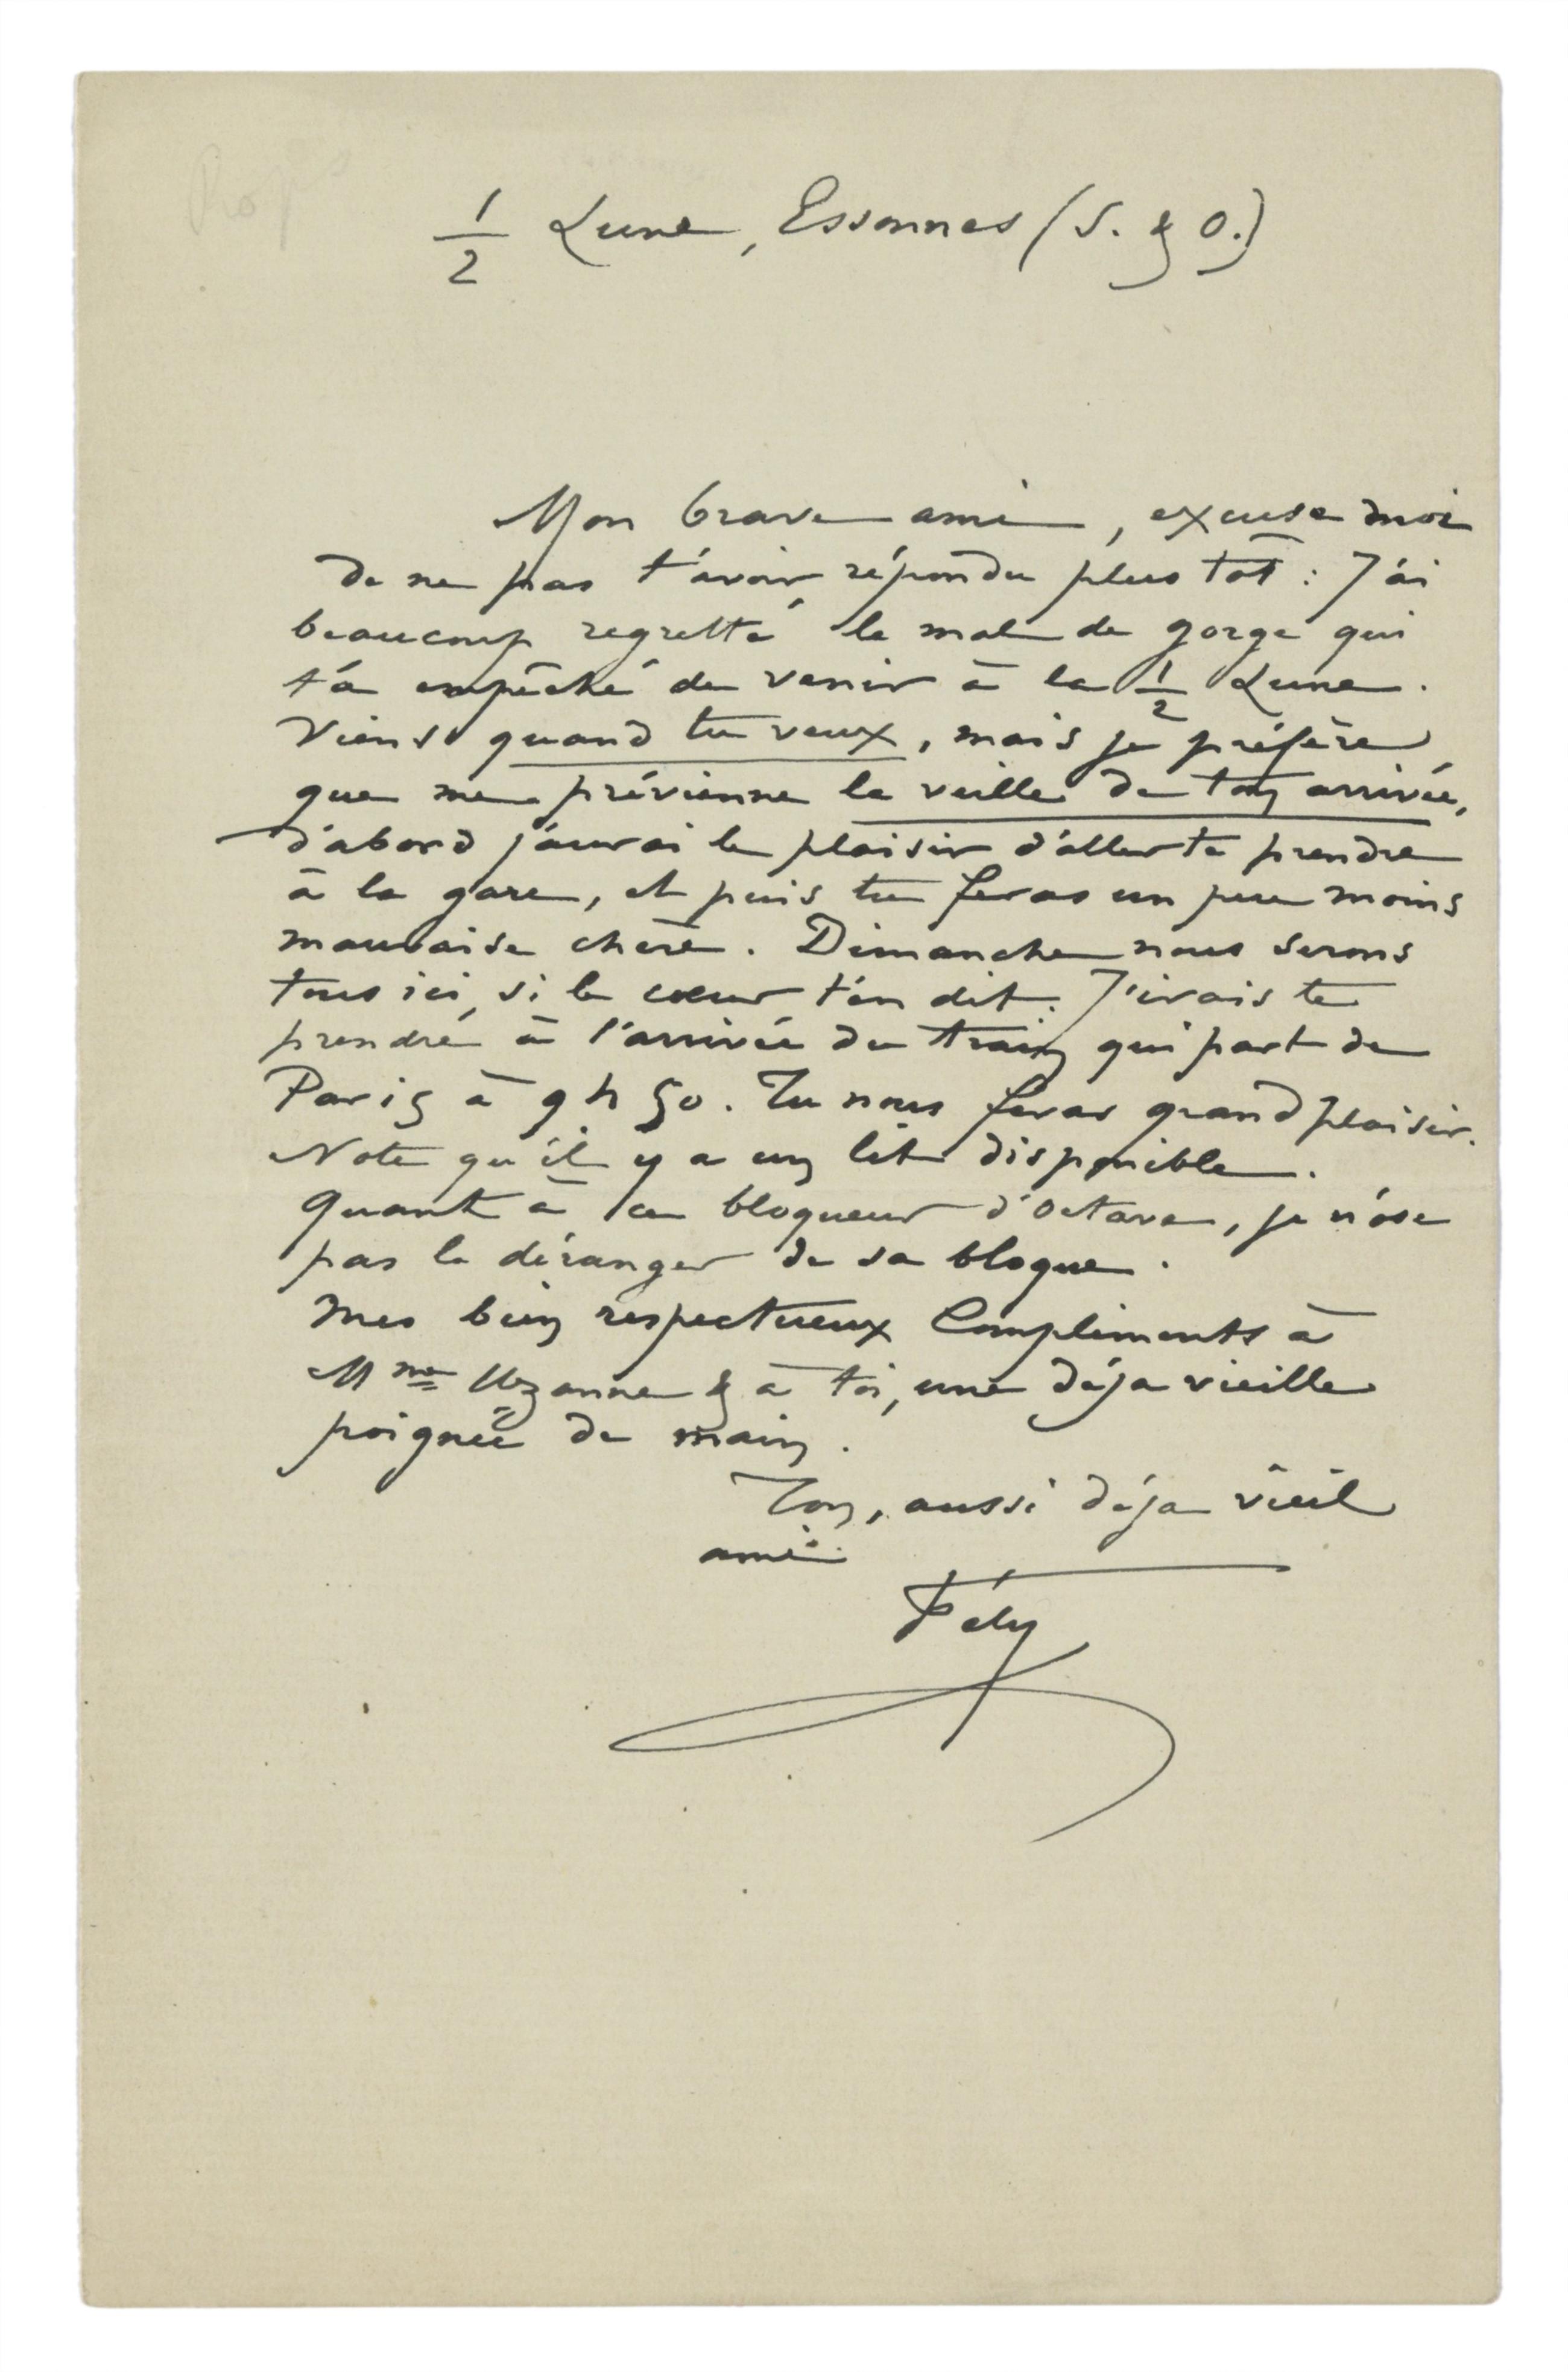 1/2 Lune, Essonnes (S. & O.)
Mon brave ami, excuse moi
de ne pas t'avoir répondu plus tôt : J'ai
beaucoup regretté le mal de gorge qui
t'a empêché de venir à la 1/2 Lune.
Viens quand tu veux, mais je préfère
que me prévienne la veille de ton arrivée,
d'abord j'aurai le plaisir d'aller te prendre
à la gare, et puis tu feras un peu moins
mauvaise chère. Dimanche nous serons
tous ici, si le cœur t'en dit. J'irais te
prendre à l'arrivée du train qui part de
Paris à 9 h 50. Tu nous feras grand plaisir.
Note qu'il y a un lit disponible.
Quant à ce bloqueur d'Octave, je n'ose
pas le déranger de sa bloque.
Mes bien respectueux Compliments à
Mme Uzanne & à toi, une déja vieille
poignée de main.
Ton, aussi déja vieil
ami.
Fély